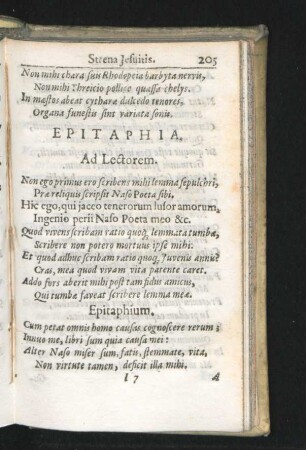 Strena Jesuitis. 205
Non mihi chara sun Rhodopeia barbyta nervis,
Non mihi Threicio pollice quassa chelys.
In mæstos abeat cythara dulcedo tenores,
Organa funestis sint variata sonis.
EPITAPHIA.
Ad Lectorem.
Non ego primus ero scribens mihi lemma sepulchri,
Præ reliquis scripsit Naso Poeta sibi.
Hic ego, qui jaceo tenerorum lusor amorum,
Ingenio perii Naso Poeta meo &c.
Quod vivens scribam ratio quoq; lemmata tumbæ,
Scribere non potero mortuus ipse mihi:
Et quod adhuc scribam ratio quoq; Iuvenis annus?
Cras, mea quod vivam vita parente caret.
Addo fors aberit mihi post tam fidus amicus,
Qui tumbæ faveat scribere lemma meæ.
Epitaphium.
Cum petat omnis homo causas cognoscere rerum;
Innuo me, libri sum quia causa mei:
Alter Naso miser sum, fatis, stemmate, vita,
Non virtute tamen, deficit illa mihi.
I 7 A